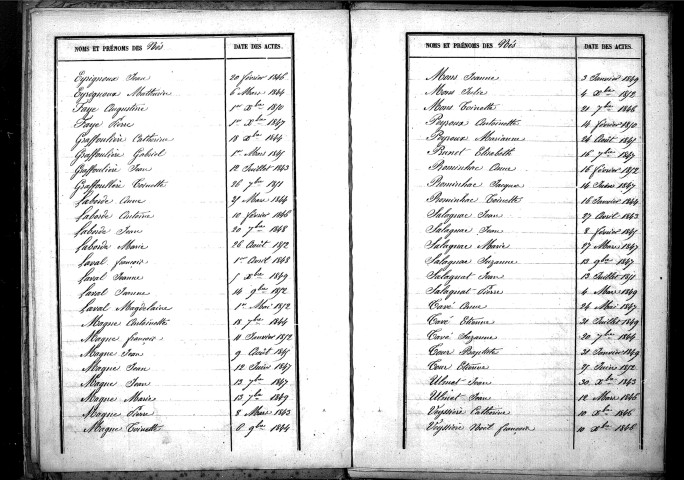 NOMS ET PRÉNOMS DES Nés DATE DES ACTES.
Eyrignoux Jean 20 février 1846
Eyrignoux Mathurin 6 Mars 1844
Faye Augustine 1er Xbre 1850
Faye Pierre 1er Xbre 1847
Graffoulière Catherine 18 Xbre 1844
Graffoulière Gabriel 1er Mars 1845
Graffoulière Jean 12 Juillet 1843
Graffoulière Toinette 26 7bre 1851
Laborde Anne 25 Mars 1844
Laborde Antoine 10 février 1846
Laborde Jean 20 7bre 1848
Laborde Marie 26 Août 1852
Laval françois 1er Avril 1848
Laval Jeanne 5 Xbre 1849
Laval Jeanne 14 9bre 1852
Laval Magdelaine 1er Mai 1852
Magne Antoinette 18 7bre 1844
Magne françois 11 Janvier 1852
Magne Jean 9 Août 1845
Magne Jean 12 Juin 1847
Magne Jean 13 7bre 1847
Magne Marie 13 7bre 1849
Magne Pierre 8 Mars 1843
Magne Toinette 6 9bre 1844
NOMS ET PRÉNOMS DES Nés DATE DES ACTES.
Mons Jeanne 3 Janvier 1849
Mons Julie 4 Xbre 1852
Mons Toinette 21 7bre 1846
Peyroux Antoinette 14 février 1850
Peyroux Marianne 24 Août 1845
Prunet Elisabeth 16 7bre 1847
Rominhac Anne 16 février 1852
Rominhac Jacques 14 Juin 1847
Rominhac Toinette 16 Janvier 1844
Salagnac Jean 27 Avril 1843
Salagnac Jean 8 février 1845
Salagnac Marie 27 Mars 1847
Salagnac Suzanne 13 9bre 1847
Salagnat Jean 13 Juillet 1851
Salagnat Pierre 4 Mars 1849
Tavé Anne 24 Mai 1847
Tavé Etienne 31 Juillet 1849
Tavé Suzanne 20 7bre 1844
Tour Baptiste 31 Janvier 1849
Tour Etienne 27 Juin 1852
Ulmat Jean 30 Xbre 1843
Ulmat Jean 12 Mars 1846
Veyssière Catherine 10 Xbre 1846
Veyssière Noël françois 10 Xbre 1846